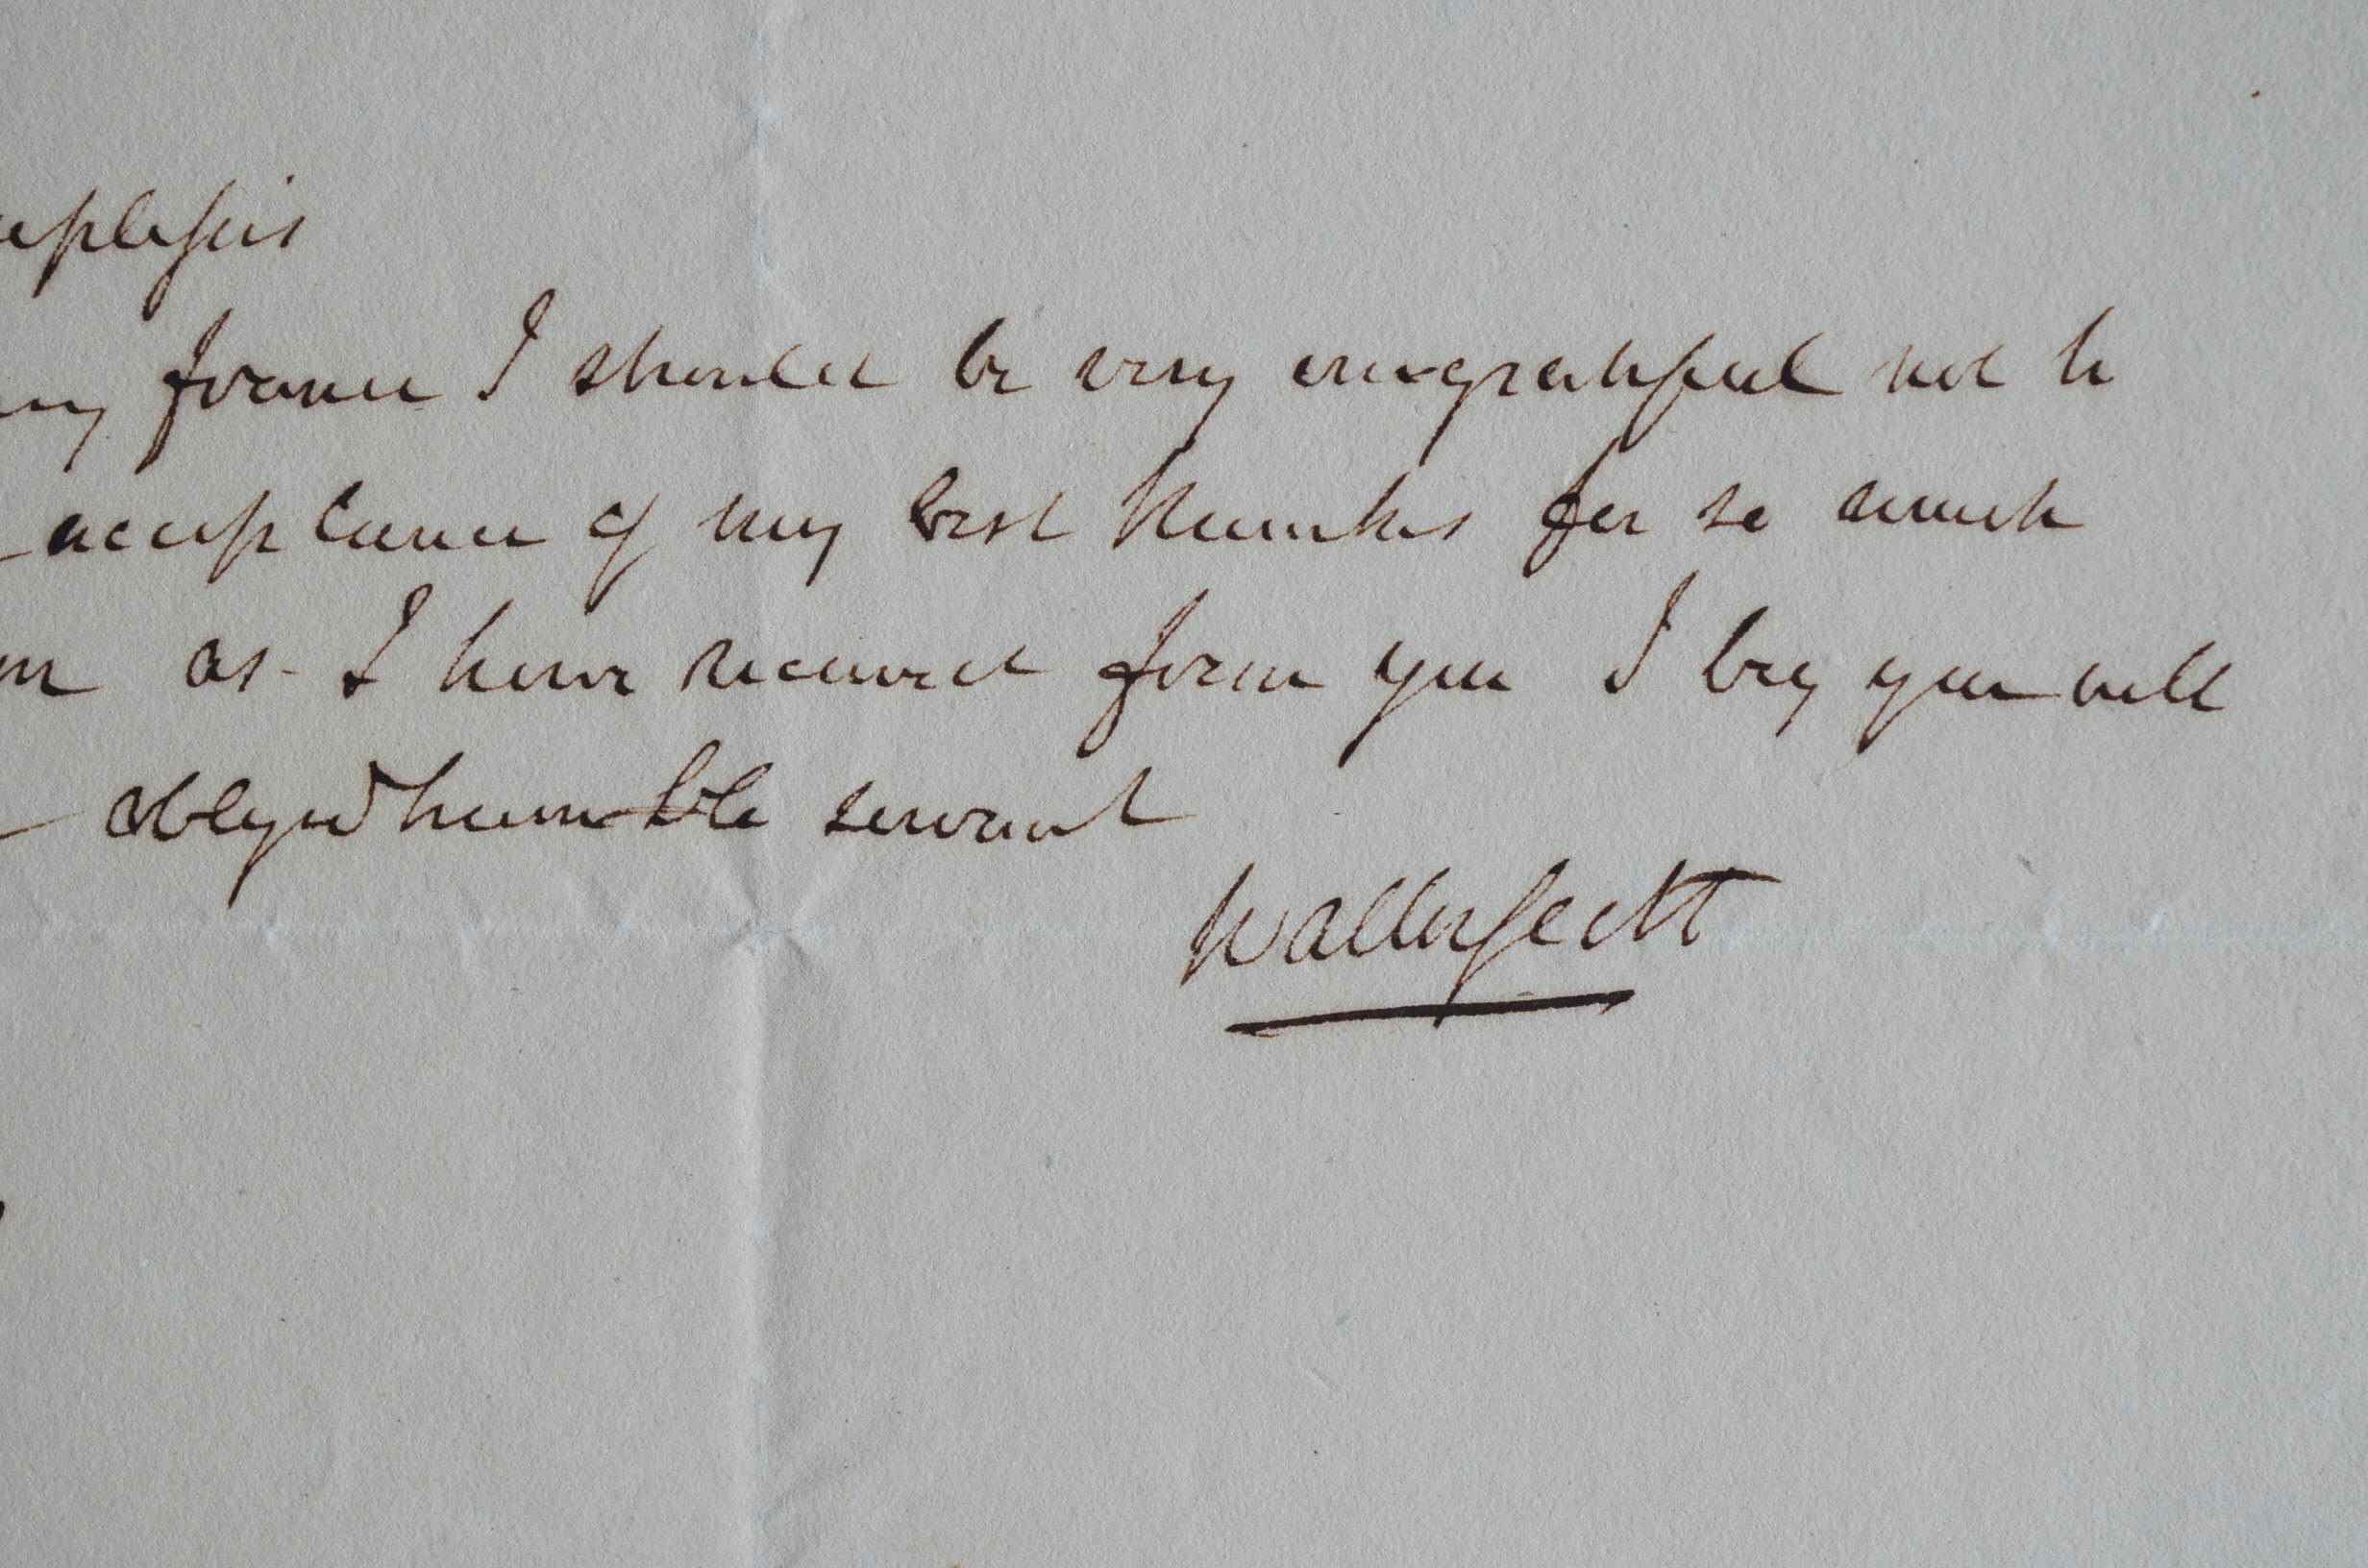 uplessis
france I should be very ungrateful not to
acceptance of my best thanks for so much
as I have received from you I beg you will
obliged humble servant
Walter Scott